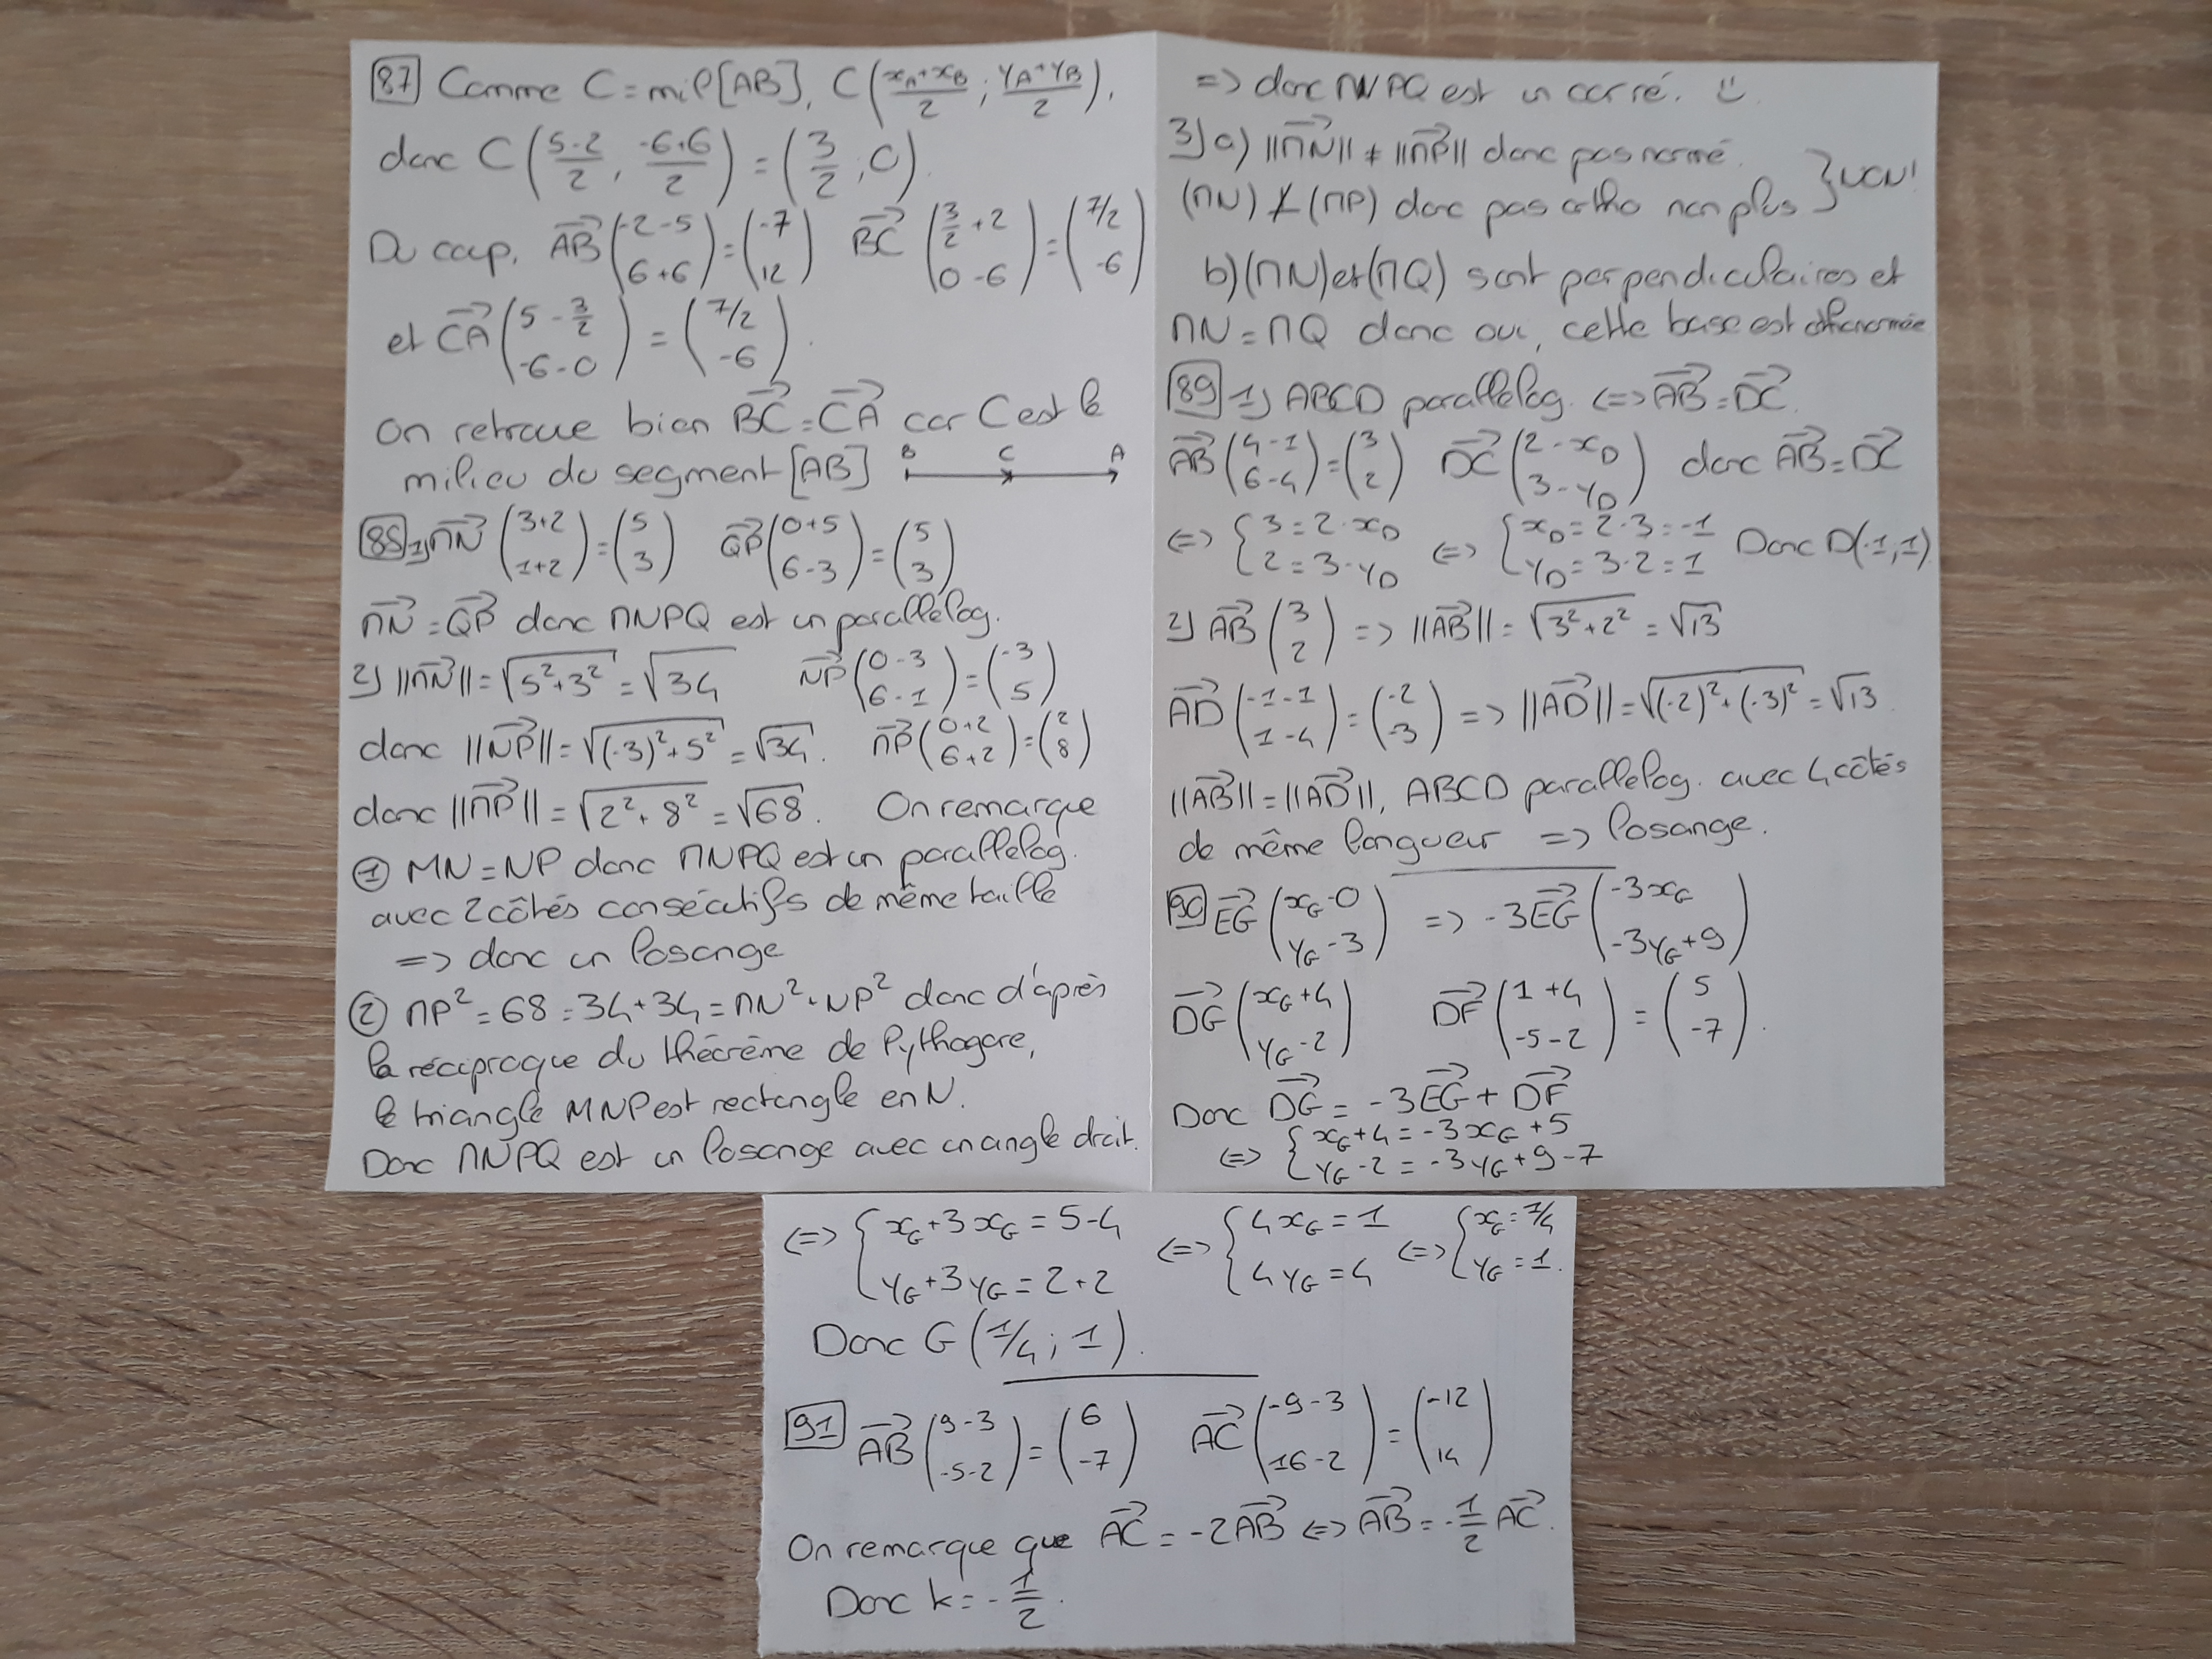 87 Comme C = mil [AB], C((xA+xB)/2 ; (yA+yB)/2),
donc C((5-2)/2, (-6+6)/2) = (3/2 ; 0).
Du coup, AB→(-2-5 ; 6+6) = (-7 ; 12) BC→(3/2+2 ; 0-6) = (7/2 ; -6)
et CA→(5-3/2 ; -6-0) = (7/2 ; -6).
On retrouve bien BC→ = CA→ car C est le
milieu du segment [AB] B C A
88 1) MN→(3+2 ; 1+2) = (5 ; 3) QP→(0+5 ; 6-3) = (5 ; 3)
MN→ = QP→ donc MNPQ est un parallélog.
2) ||MN→|| = √(5²+3²) = √34 NP→(0-3 ; 6-1) = (-3 ; 5)
donc ||NP→|| = √((-3)²+5²) = √34. MP→(0+2 ; 6+2) = (2 ; 8)
donc ||MP→|| = √(2²+8²) = √68. On remarque
① MN = NP donc MNPQ est un parallélog.
avec 2 côtés consécutifs de même taille
=> donc un losange
② MP² = 68 = 34+34 = MN²+NP² donc d'après
la réciproque du théorème de Pythagore,
le triangle MNP est rectangle en N.
Donc MNPQ est un losange avec un angle droit.
=> donc MNPQ est un carré. Ü.
3) a) ||MN→|| ≠ ||MP→|| donc pas normé.
(MN) ⊥̸ (MP) donc pas ortho non plus } NON!
b) (MN) et (MQ) sont perpendiculaires et
MN = MQ donc oui, cette base est orthonormée
89 1) ABCD parallélog. <=> AB→ = DC→.
AB→(4-1 ; 6-4) = (3 ; 2) DC→(2-xD ; 3-yD) donc AB→ = DC→
<=> { 3 = 2-xD ; 2 = 3-yD <=> { xD = 2-3 = -1 ; yD = 3-2 = 1 Donc D(-1;1)
2) AB→(3 ; 2) => ||AB→|| = √(3²+2²) = √13
AD→(-1-1 ; 1-4) = (-2 ; -3) => ||AD→|| = √((-2)²+(-3)²) = √13.
||AB→|| = ||AD→||, ABCD parallélog. avec 4 côtés
de même longueur => losange.
90 EG→(xG-0 ; yG-3) => -3EG→(-3xG ; -3yG+9)
DG→(xG+4 ; yG-2) DF→(1+4 ; -5-2) = (5 ; -7).
Donc DG→ = -3EG→ + DF→
<=> { xG+4 = -3xG+5 ; yG-2 = -3yG+9-7
<=> { xG+3xG = 5-4 ; yG+3yG = 2+2 <=> { 4xG = 1 ; 4yG = 4 <=> { xG = 1/4 ; yG = 1.
Donc G(1/4 ; 1).
91 AB→(9-3 ; -5-2) = (6 ; -7) AC→(-9-3 ; 16-2) = (-12 ; 14)
On remarque que AC→ = -2AB→ <=> AB→ = -1/2 AC→.
Donc k = -1/2.